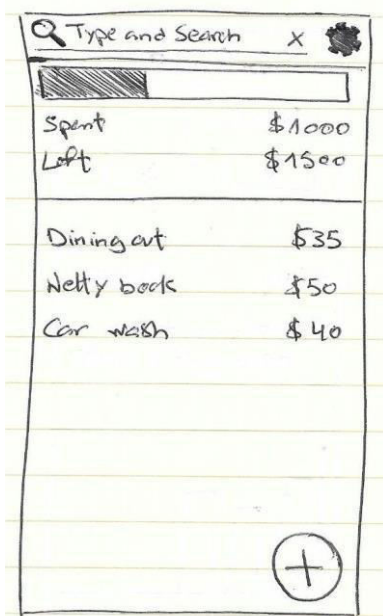 Type and Search X
Spent $1000
Left $1500
Dining out $35
Netty book $50
Car wash $40
+